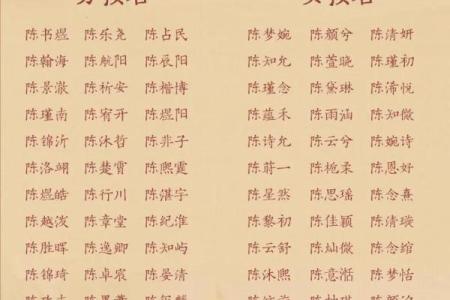 陈书煜 陈乐尧 陈占民 陈梦婉 陈颜兮 陈清妍
陈翰海 陈航阳 陈辰阳 陈知允 陈萱晓 陈瑾初
陈景澈 陈祈安 陈楷博 陈瑾念 陈黛琳 陈浠悦
陈瑾南 陈宥开 陈煜阳 陈蕴禾 陈雨涵 陈知微
陈锦沂 陈沐哲 陈非子 陈诗允 陈云兮 陈婉诗
陈洛翊 陈楚霄 陈熙霆 陈蔚一 陈栀柔 陈恩好
陈煜皓 陈行川 陈湛宇 陈星然 陈思瑶 陈念熹
陈越泼 陈章堂 陈纪淮 陈黎初 陈佳颖 陈清璇
陈胜晖 陈逸卿 陈知屿 陈云舒 陈灿微 陈念绾
陈锦琦 陈卓宸 陈晏清 陈沐熙 陈意湉 陈梦恬